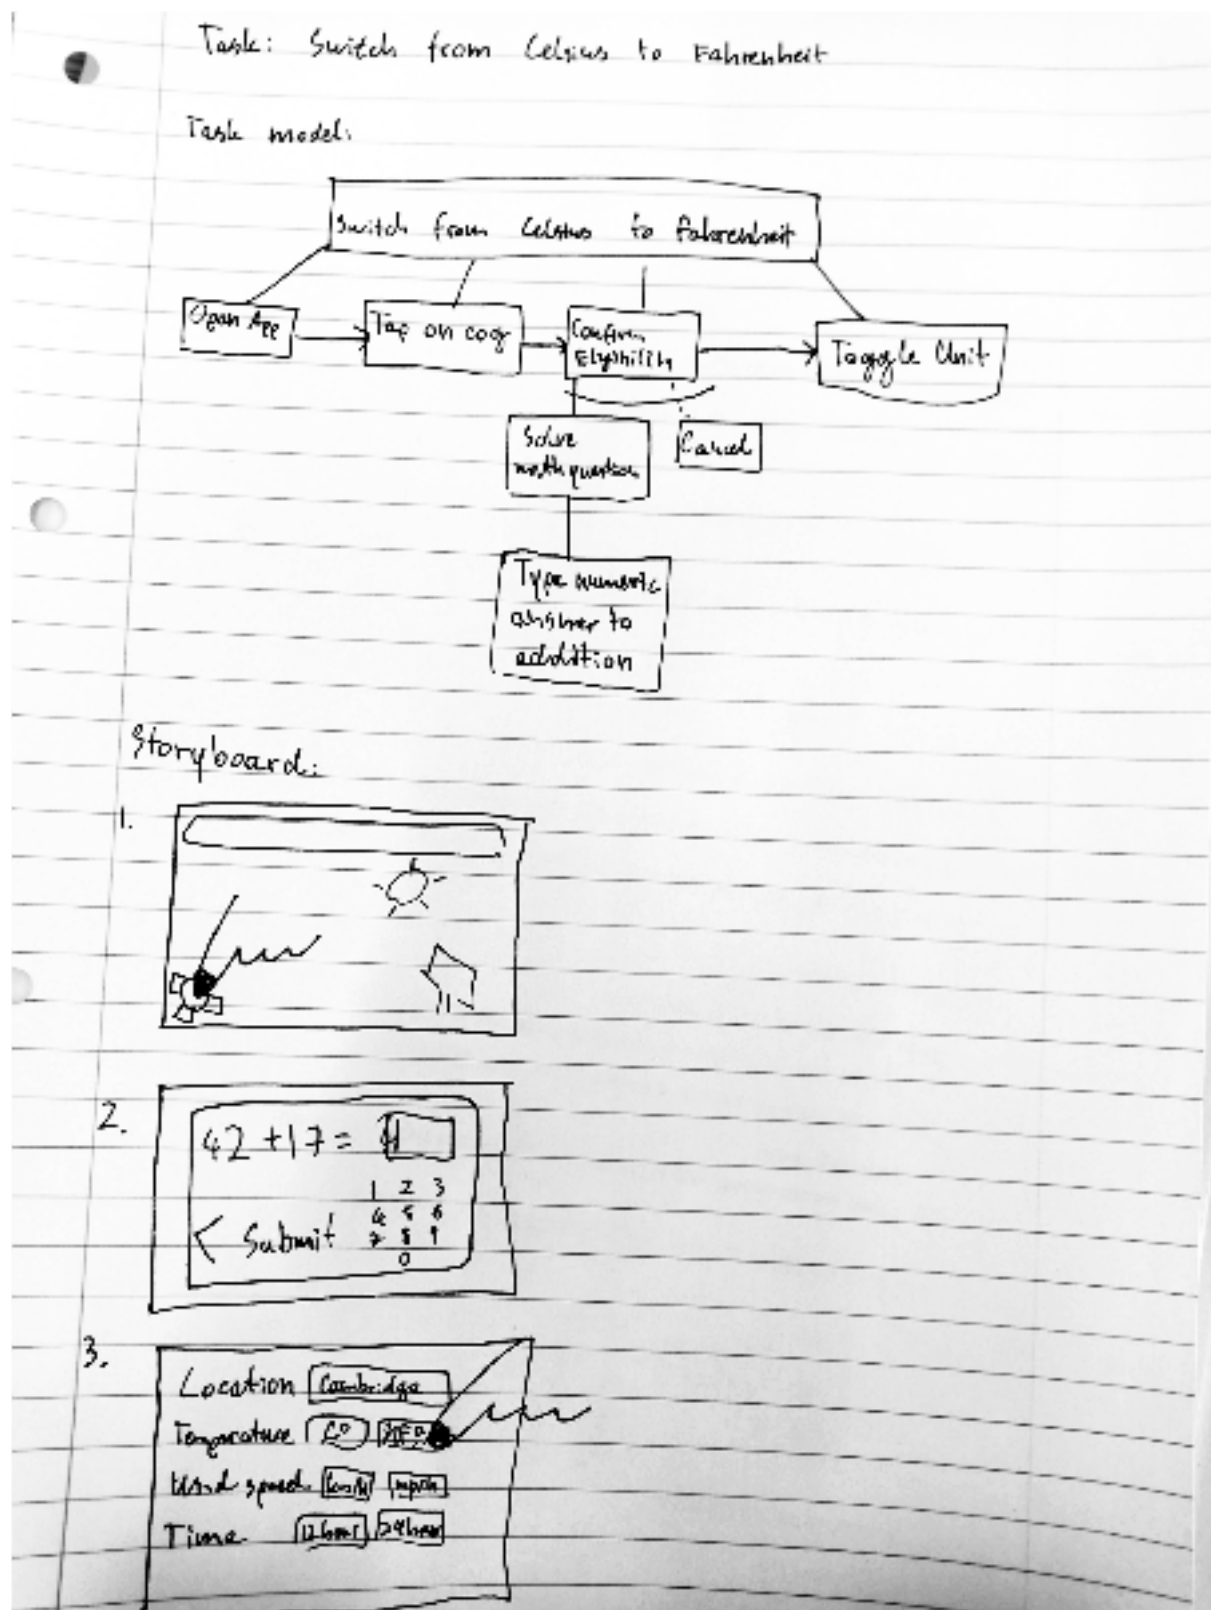 Task: Switch from Celsius to Fahrenheit
Task model:
Switch from Celsius to Fahrenheit
Open App
Tap on cog
Confirm
Eligibility
Toggle Unit
Solve
math question
Cancel
Type numeric
answer to
addition
Storyboard:
1.
2.
42 + 17 =
1 2 3
4 5 6
7 8 9
0
< Submit
3.
Location Cambridge
Temperature C° F°
Wind speed km/h mph
Time 12 hour 24 hour